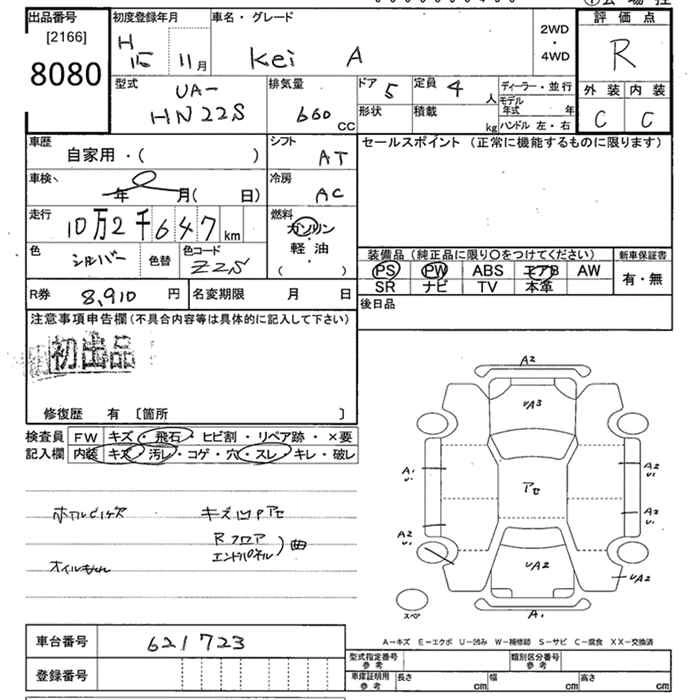 出品番号
[2166]
8080
初度登録年月
H 15 11月
車名・グレード
Kei A
2WD
・
4WD
評価点
R
外装 内装
C C
型式
UA-
HN22S
排気量
660 CC
ドア 5
形状
定員 4 人
積載 kg
ディーラー・並行
モデル年式 年
ハンドル 左・右
車歴
自家用・( )
シフト
AT
セールスポイント (正常に機能するものに限ります)
車検
年 月( 日)
冷房
AC
走行
10万2千647km
燃料
ガソリン
・
軽油
( )
色
シルバー
色替
色コード
Z2S
装備品 (純正品に限り○をつけてください)
PS PW ABS エアB AW
SR ナビ TV 本革
新車保証書
有・無
R券 8,910 円
名変期限 月 日
後日品
注意事項申告欄 (不具合内容等は具体的に記入して下さい)
初出品
修復歴 有 〔箇所 〕
検査員
記入欄
FW キズ・飛石・ヒビ割・リペア跡・×要
内装 キズ・汚レ・コゲ・穴・スレ・キレ・破レ
キズ凹Pアセ
Rフロア
エンドパネル
曲
A2
UA3
A1
U1
A2
U1
アセ
A2
U1
A2
U1
UA2
UA2
A1
スペア
A－キズ E－エクボ U－凹み W－補修跡 S－サビ C－腐食 XX－交換済
車台番号 621723
登録番号
型式指定番号
参考
類別区分番号
参考
車庫証明用
参考
長さ cm
幅 cm
高さ cm